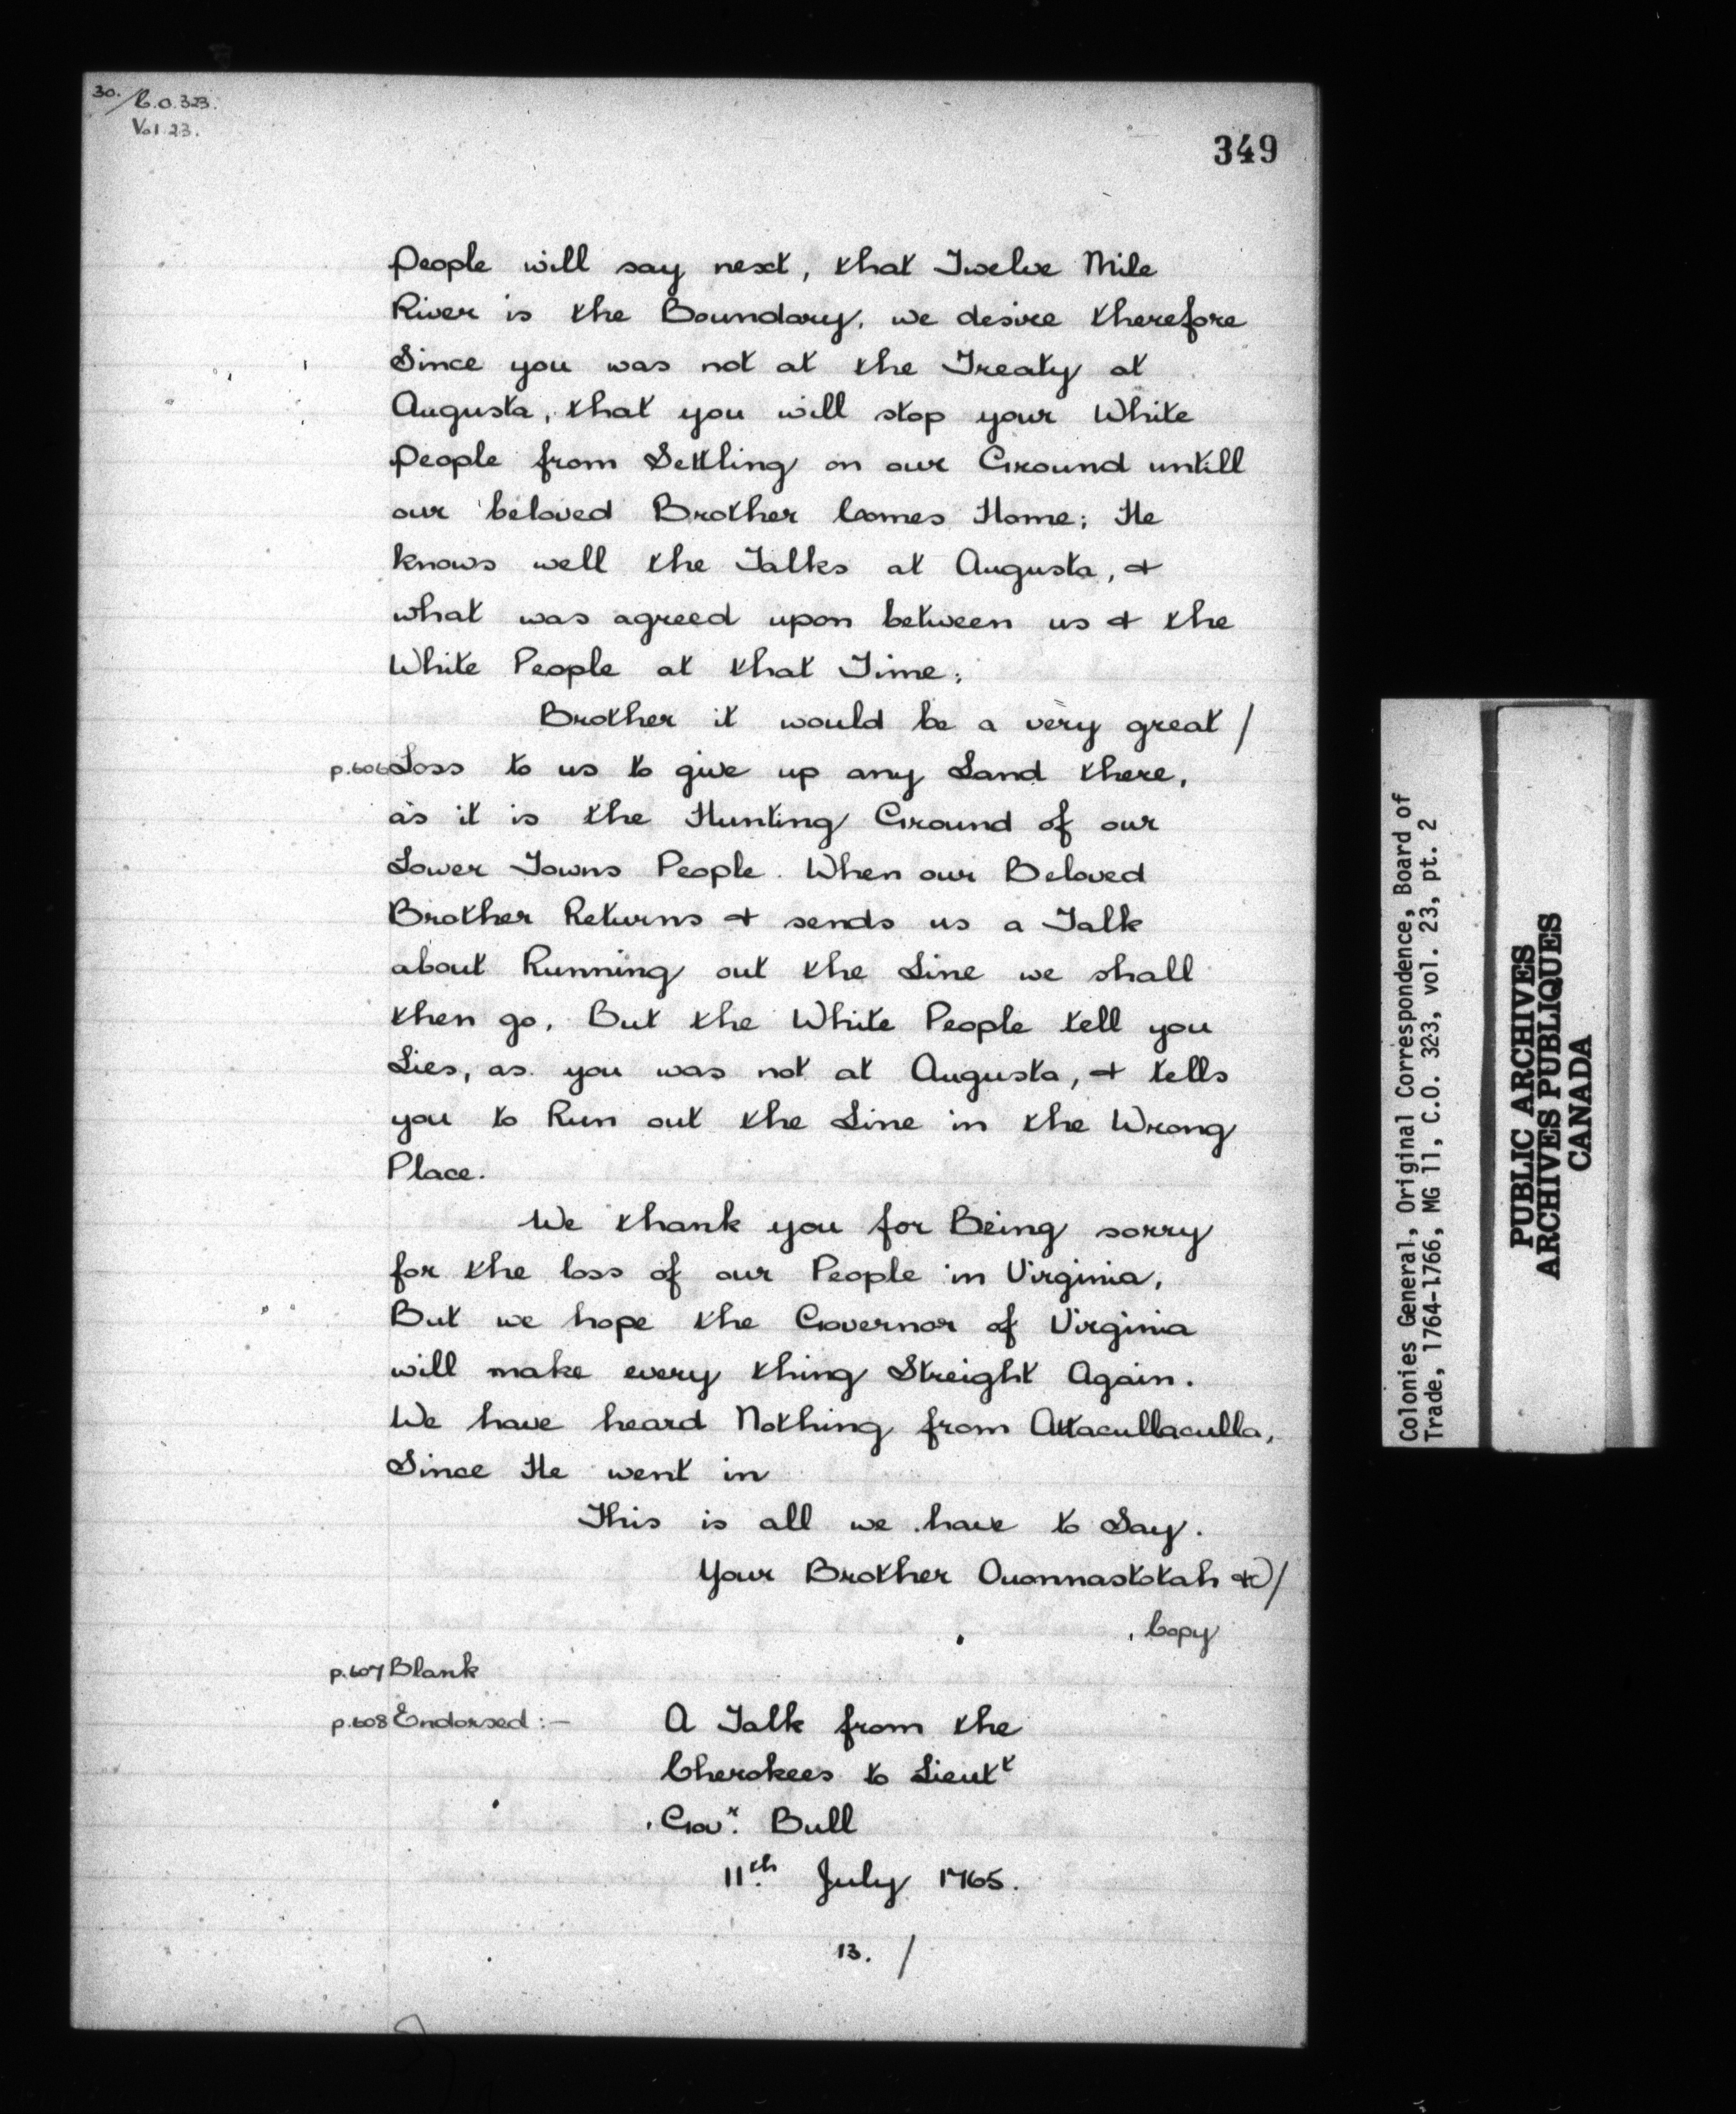 30. / C.O. 323.
Vol 23.
349
People will say next, that Twelve Mile
River is the Boundary, we desire therefore
Since you was not at the Treaty at
Augusta, that you will stop your White
People from Settling on our Ground untill
our beloved Brother Comes Home; He
knows well the Talks at Augusta, &
what was agreed upon between us & the
White People at that Time;
Brother it would be a very great /
p.606 Loss to us to give up any Land there,
as it is the Hunting Ground of our
Lower Towns People. When our Beloved
Brother Returns & sends us a Talk
about Running out the Line we shall
then go, But the White People tell you
Lies, as you was not at Augusta, & tells
you to Run out the Line in the Wrong
Place.
We thank you for Being sorry
for the loss of our People in Virginia,
But we hope the Governor of Virginia
will make every thing Streight Again.
We have heard Nothing from Attacullaculla,
Since He went in
This is all we have to Say.
Your Brother Ouonnastotah &c /
Copy
p.607 Blank
p.608 Endorsed :- A Talk from the
Cherokees to Lieutt
Govr. Bull
11th July 1765.
13. /
Colonies General, Original Correspondence, Board of
Trade, 1764-1766, MG 11, C.O. 323, vol. 23, pt. 2
PUBLIC ARCHIVES
ARCHIVES PUBLIQUES
CANADA